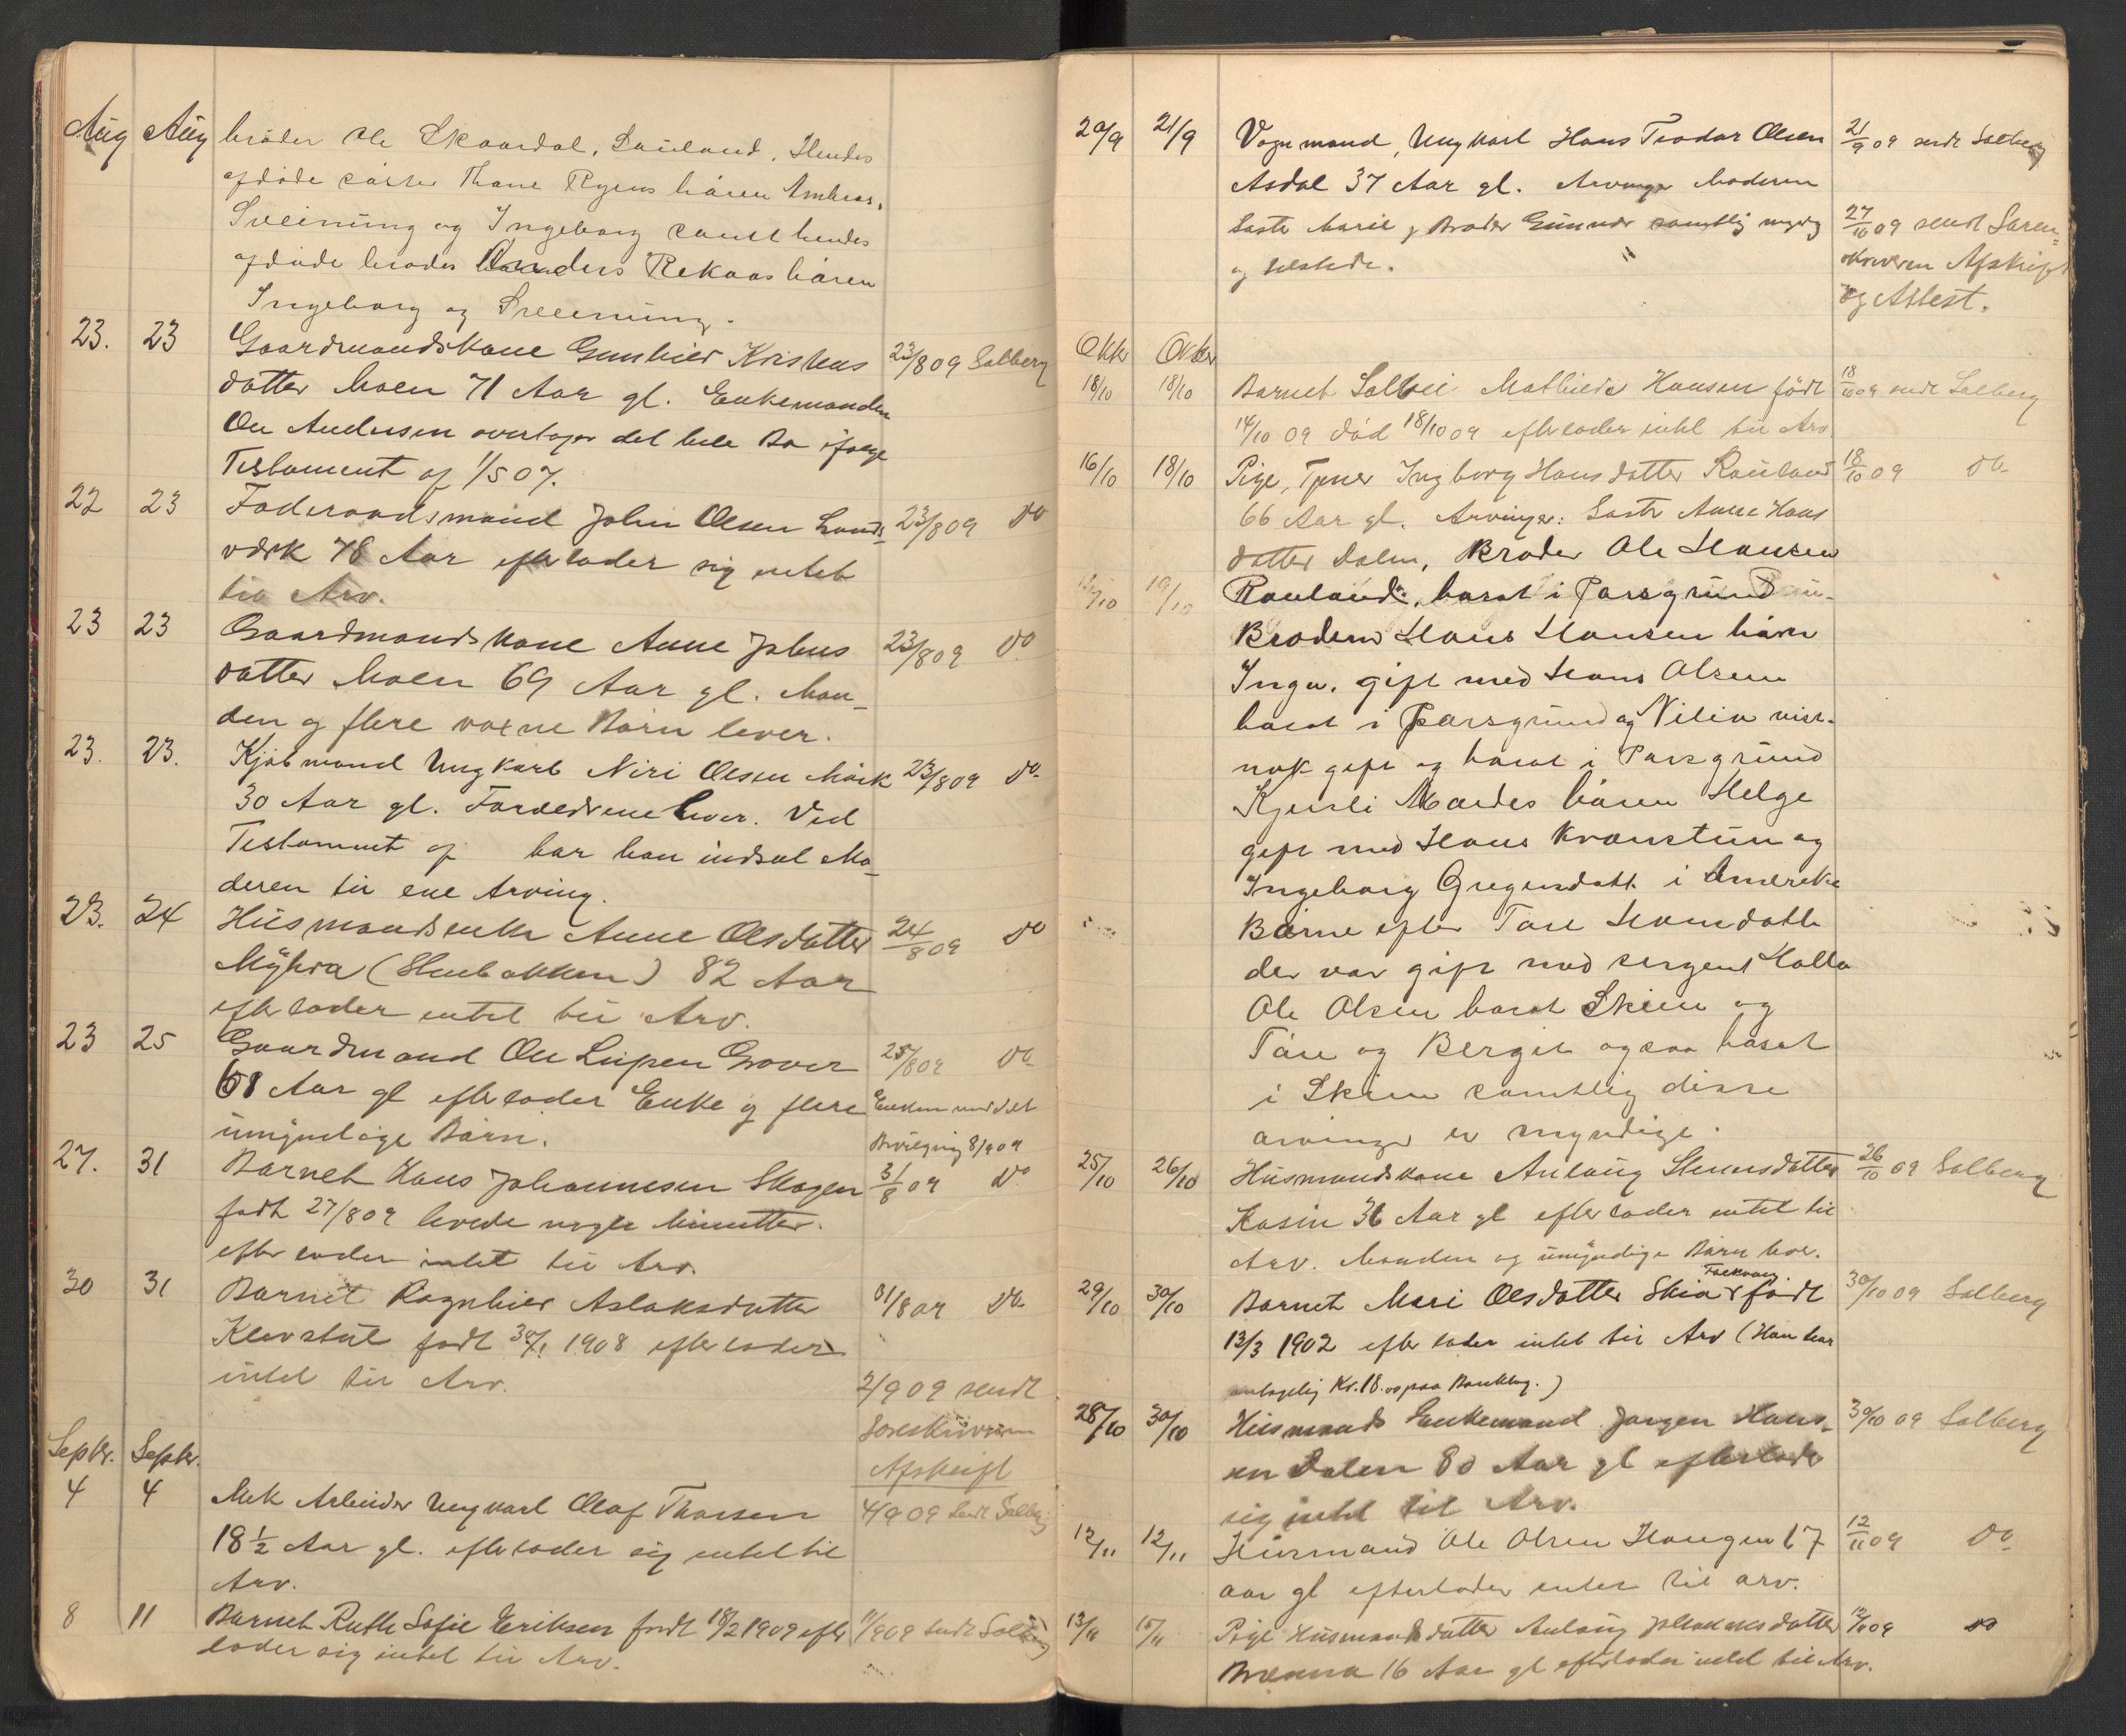 Aug Aug broder Ole Skaardal, Sauland, Hendes
afdöde söster Thone Ryens börn
Sveinung og Ingeborg samt hendes
afdöde broder Anders Rekaas börn
Ingeborg og Sveinung.
23. 23 Gaardmandskone Gunhild Kristens 23/8 09 Solberg
datter Moen 71 Aar gl. Enkemanden
Ole Andersen overtager det hele Bo ifølge
Testament af 1/5 07.
22 23 Föderaadsmand John Olsen Lands 23/8 09 Do
værk 78 Aar efterlader sig intet
til Arv.
23 23 Gaardmandskone Anne Johns 23/8 09 Do
datter Moen 69 Aar gl. Man-
den og flere voxne Börn lever.
23. 23. Kjöbmand Ungkarl Niri Olsen Mörk 23/8 09 Do
30 Aar gl. Forældrene lever. Ved
Testament af har han indsat Mo-
deren til ene Arving.
23. 24 Husmandsenke Anne Olsdatter 24/8 09 Do
Myhra (Stenbakken) 82 Aar
efterlader intet til Arv.
23 25 Gaardmand Ole Grover 25/8 09 Do
68 Aar gl efterlader Enke og flere Enken meddelt
umyndige Börn. Bevilgning 8/9 09
27. 31 Barnet Hans Johannesen Skogen 31/8 09 Do
födt 27/8 09 levede nogle Minutter.
efterlader intet til Arv.
30 31 Barnet Ragnhild Aslaksdatter 31/8 09 Do
Klevstul födt 30/1 1908 efterlader
intet til Arv. 2/9 09 sendt
Sorenskriveren
Afskrift
Septbr. Septbr.
4 4 Mek Arbeider Ungkarl Olaf Thorsen 4/9 09 sendt Solberg
18 1/2 Aar gl. efterlader sig intet til
Arv.
8 11 Barnet Ruth Sofie Eriksen födt 18/2 1909 efter 11/9 09 sendt Solberg
lader sig intet til Arv.
20/9 21/9 Vognmand, Ungkarl Hans Teodor Olsen 21/9 09 sendt Solberg
Asdal 37 Aar gl. Arvinger Moderen
Söster Marie og Broder Gunnar samtlig myndig 27/10 09 sendt Soren-
og tilstede. skriveren Afskrift
og Attest.
Oktbr Oktbr
18/10 18/10 Barnet Solvei Mathilde Hansen födt 18/10 09 sendt Solberg
14/10 09 död 18/10 09 efterlader intet til Arv
16/10 18/10 Pige, Tjener Ingborg Hansdatter Rauland 18/10 09 Do
66 Aar gl. Arvinger: Söster Anne Hans
datter Dalen, Broder Ole Hansen
Rauland, bosat i Porsgrund
Broderen Hans Hansen börn
Inga, gift med Hans Olsen
bosat i Porsgrund og Nilia vist-
nok gift og bosat i Porsgrund
Kjersti börn Helge
gift med Hans Kvanstun og
Ingeborg Gregersdatt. i Amerika
Börne efter Tone Hansdatte
der var gift med sergent Holla
Ole Olsen bosat Skien og
Tone og Bergit ogsaa bosat
i Skien samtlig disse
arvinger er myndige.
25/10 26/10 Husmandskone Aslaug Steensdatter 26/10 09 Solberg
Kasin 36 Aar gl efterlader intet til
Arv. Manden og umyndige Börn lever.
29/10 30/10 Barnet Mari Olsdatter födt 30/10 09 Solberg
13/3 1902 efterlader intet til Arv (Hun har
antagelig Kr. 18.00 paa Bankbog.)
28/10 30/10 Husmands Enkemand Jörgen Hans- 30/10 09 Solberg
en Dalen 80 Aar gl efterlader
sig intet til Arv.
12/11 12/11 Husmand Ole Olsen Haugen 67 12/11 09 Do
aar gl efterlader intet til arv.
13/11 15/11 Pige Husmandsdatter Aslaug 15/11 09 Do
Brænna 16 Aar gl efterlader intet til Arv.